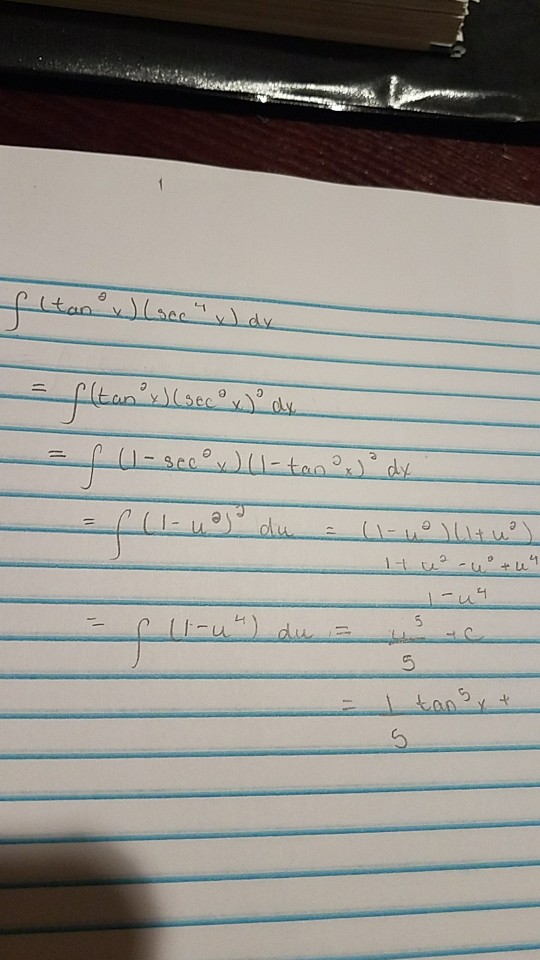 ∫(tan²x)(sec⁴x)dx
= ∫(tan²x)(sec²x)² dx
= ∫(1-sec²x)(1-tan²x)² dx
= ∫(1-u²)² du = (1-u²)(1+u²)
1+u²-u²+u⁴
1-u⁴
= ∫(1-u⁴) du = u⁵/5 +c
= 1/5 tan⁵x +